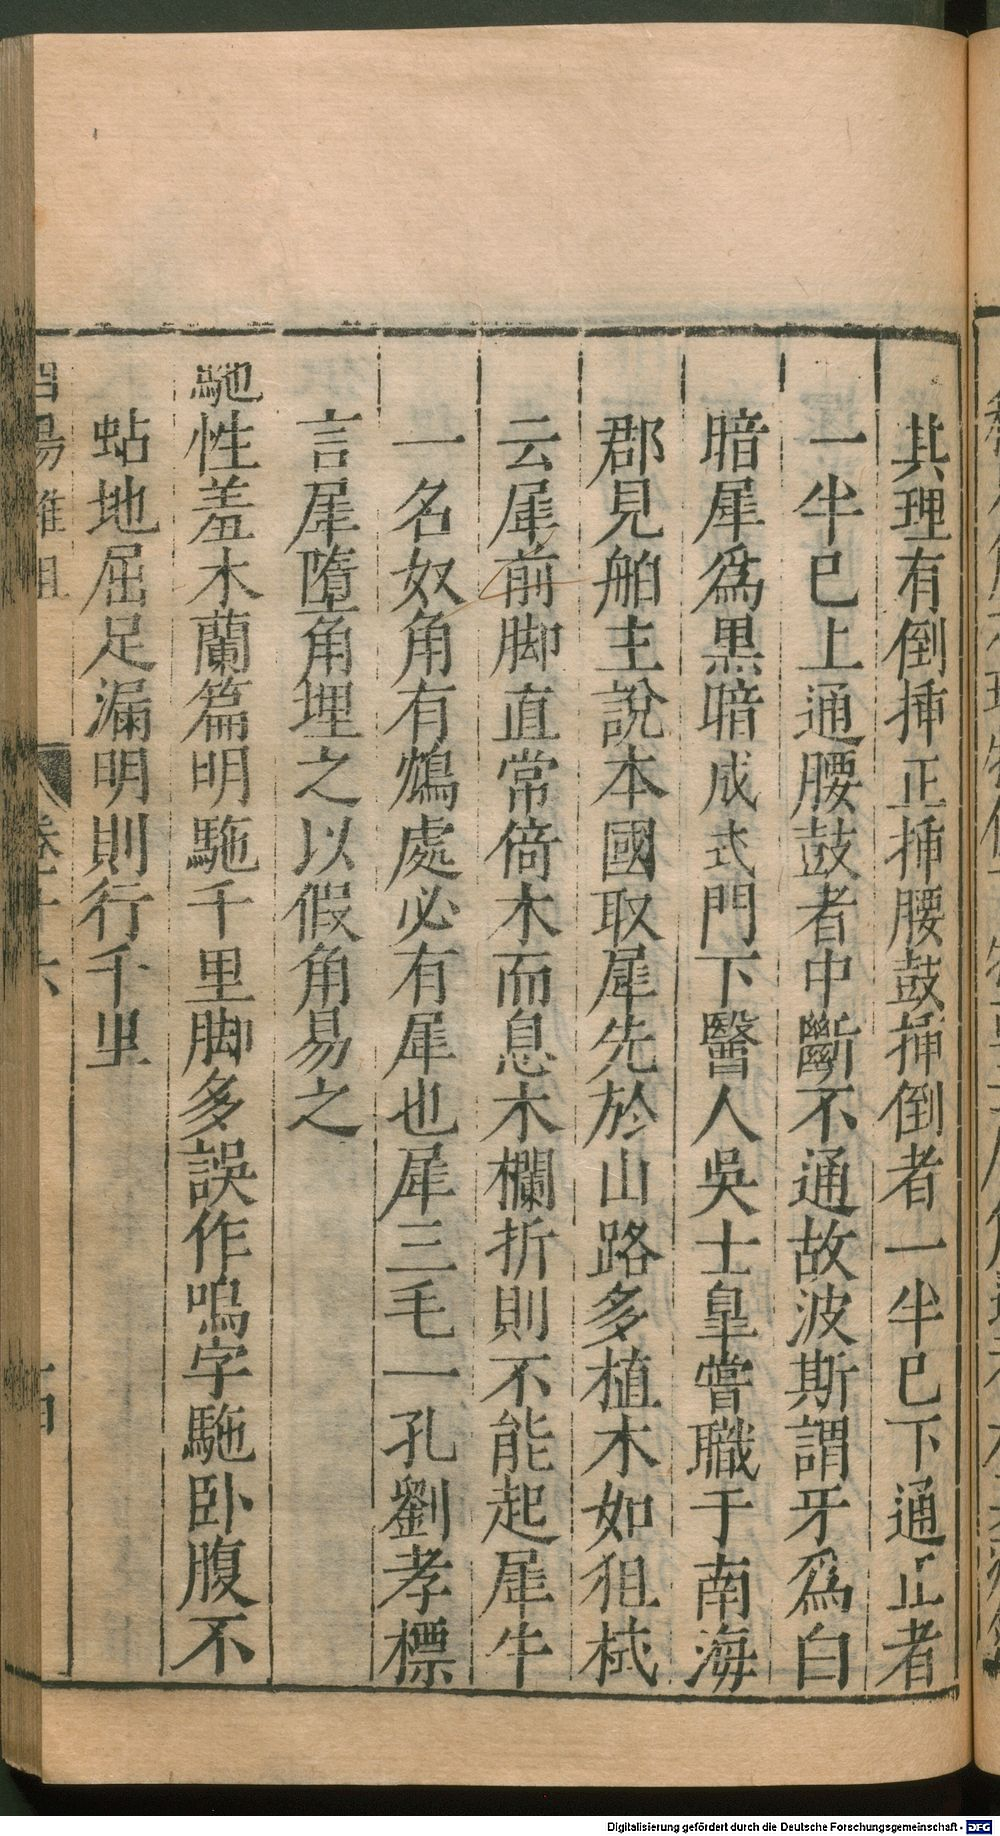 其理有倒揷正揷腰鼓揷倒者一半已下通正者
一半巳上通腰鼓者中斷不通故波斯謂牙爲白
暗犀爲黒暗成式門下醫人吳士臯嘗職于南海
郡見舶主說本國取犀先於山路多植木如狙杙
云犀前脚直常倚木而息木欄折則不能起犀牛
一名奴角有鴆處必有犀也犀三毛一孔劉孝標
言犀墮角埋之以假角易之
駞性羞木蘭篇明駞千里脚多誤作鳴字駞卧腹不
蛅地屈足漏明則行千里
酉陽雜俎 卷十六 十四
Digitalisierung gefördert durch die Deutsche Forschungsgemeinschaft - DFG